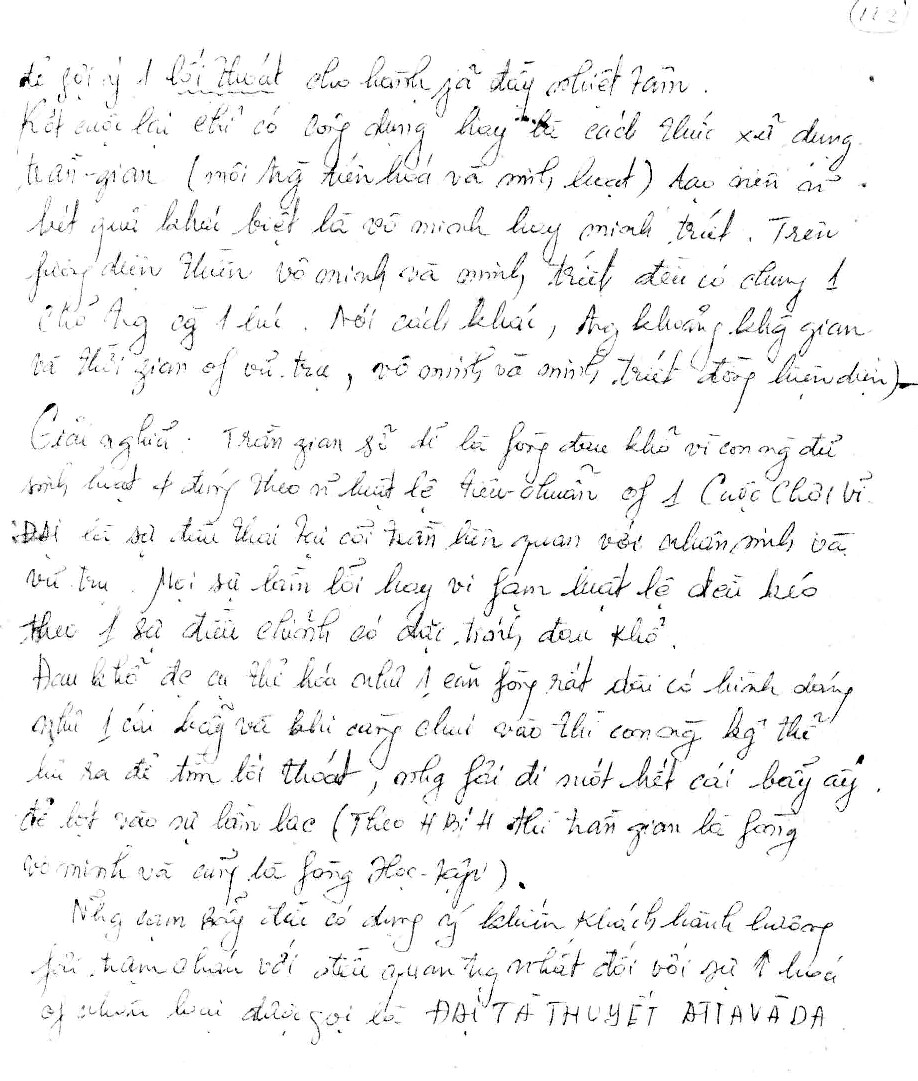 (112)
để gợi ý 1 lối thoát cho hành jả đầy nhiệt tâm.
Kết cuộc lại chỉ có công dụng hay là cách thức xử dụng
trần-gian (môi trg tiến hoá và sinh hoạt) tạo nên n~
kết quả khác biệt là vô minh hay minh triết. Trên
fương diện thiền vô minh và minh triết đều có chung 1
chỗ trg cg 1 lúc. Nói cách khác, trg khoảng khg gian
và thời gian of vũ-trụ, vô minh và minh triết đồng hiện diện)-
Giải nghĩa: Trần gian sở dĩ là fòng đau khổ vì con ng
sinh hoạt đúng theo n~ luật lệ tiêu-chuẩn of 1 Cuộc Chơi Vĩ-
ĐẠI là sự đầu thai tại cõi trần liên quan với nhân sinh và
vũ trụ. Mọi sự lầm lỗi hay vi fạm luật lệ đều kéo
theo 1 sự điều chỉnh có đặc tính đau khổ.
Đau khổ đc cụ thể hóa như 1 căn fòng rất dài có hình dáng
như 1 cái bẫy và khi càng chui vào thì con ng kg thể
lùi ra để tìm lối thoát, nhg fải đi suốt hết cái bẫy ấy.
để lọt vào sự lầm lạc (Theo H BÍ H thì trần gian là fòng
vô minh và cũng là fòng Học-tập).
Nhg cạm bẫy đều có dụng ý khiến khách hành hương
fải chạm với điều quan trg nhất đối với sự ↑ hoá
of nhân loại được gọi là ĐẠI TÀ THUYẾT ATTAVADA